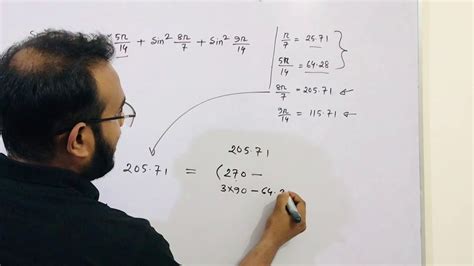 S
5π/14 + Sin² 8π/7 + Sin² 9π/14
π/7 = 25.71
5π/14 = 64.28
8π/7 = 205.71 ←
9π/14 = 115.71 ←
205.71
205.71 = (270 —
3×90 – 64.2